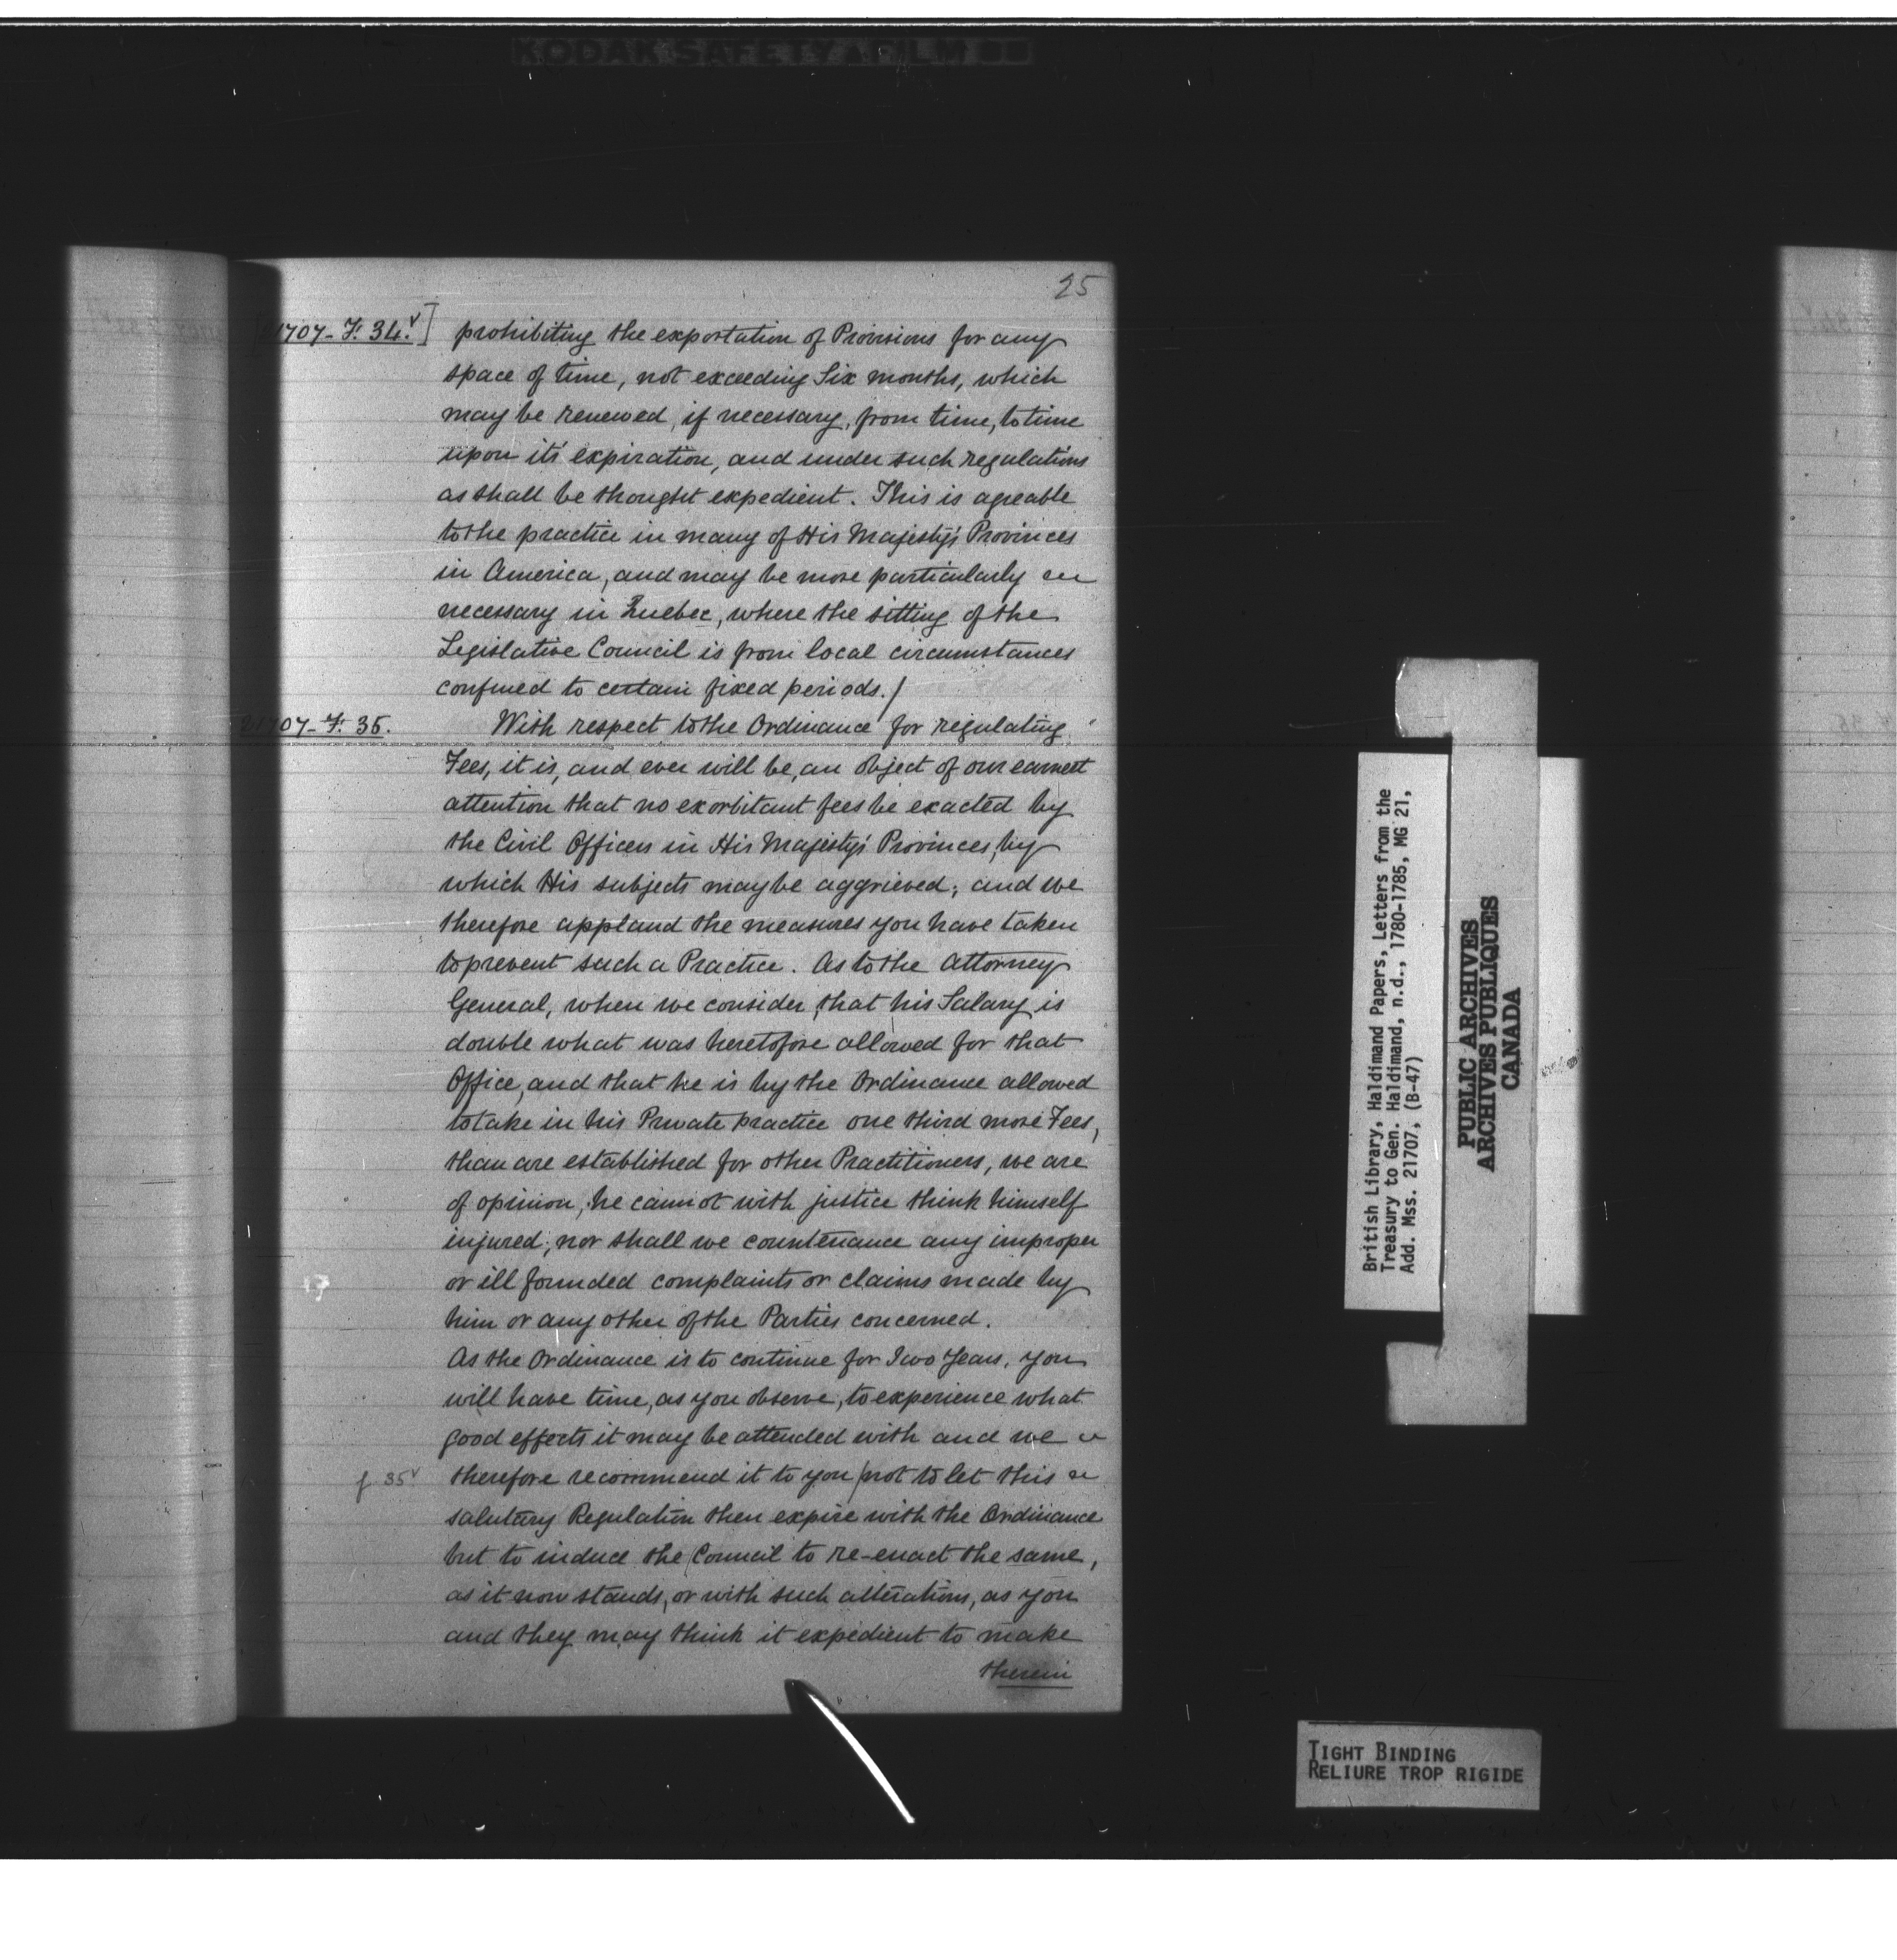 KODAK SAFETY FILM
25
1707-F. 34.v]
prohibiting the exportation of Provisions for any
space of time, not exceeding Six months, which
may be renewed, if necessary, from time, to time
upon it's expiration, and under such regulations
as shall be thought expedient. This is agreable
to the practice in many of His Majesty's Provinces
in America, and may be more particularly
necessary in Quebec, where the sitting of the
Legislative Council is from local circumstances
confined to certain fixed periods./
21707-F. 35.
With respect to the Ordinance for regulating
Fees, it is, and ever will be, an object of our earnest
attention that no exorbitant fees be exacted by
the Civil Officers in His Majesty's Provinces, by
which His subjects may be aggrieved; and we
therefore applaud the measures you have taken
to prevent such a Practice. As to the Attorney
General, when we consider, that his Salary is
double what was heretofore allowed for that
Office, and that he is by the Ordinance allowed
to take in his Private practice one third more Fees,
than are established for other Practitioners, we are
of opinion, he cannot with justice think himself
injured; nor shall we countenance any improper
or ill founded complaints or claims made by
him or any other of the Parties concerned.
As the Ordinance is to continue for Two Years, you
will have time, as you observe, to experience what
good effects it may be attended with and we
f 35v
therefore recommend it to you / not to let this
salutary Regulation then expire with the Ordinance
but to induce the Council to re-enact the same,
as it now stands, or with such alterations, as you
and they may think it expedient to make
therein
British Library, Haldimand Papers, Letters from the
Treasury to Gen. Haldimand, n.d., 1780-1785, MG 21,
Add. Mss. 21707, (B-47)
PUBLIC ARCHIVES
ARCHIVES PUBLIQUES
CANADA
TIGHT BINDING
RELIURE TROP RIGIDE